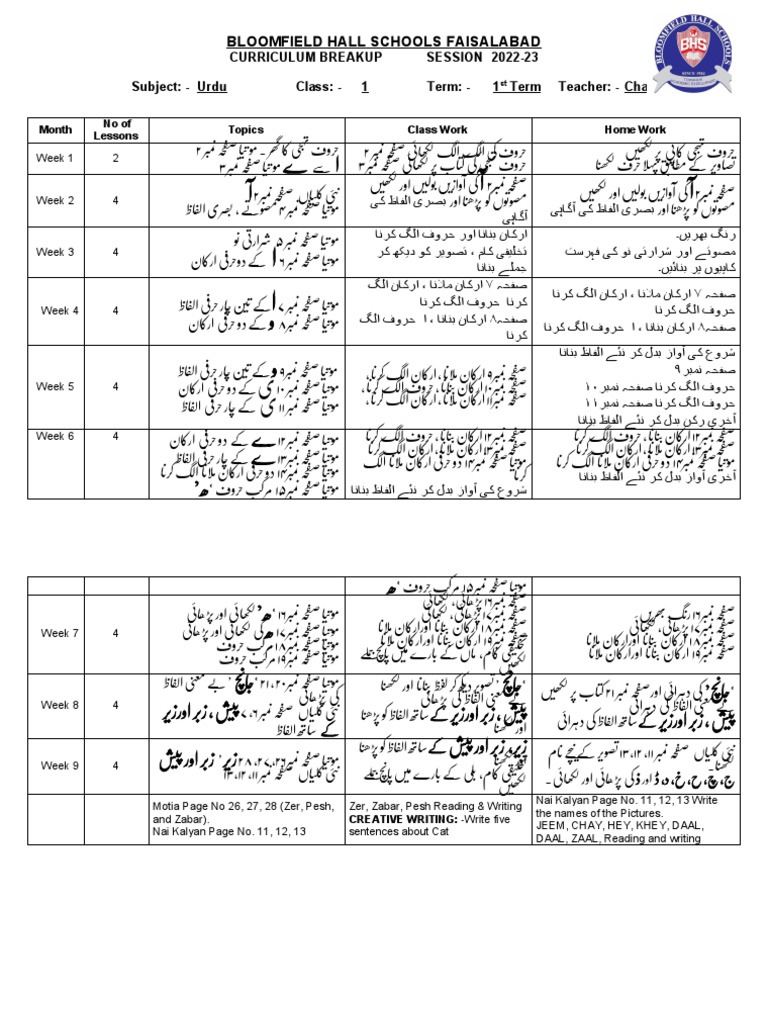 BLOOMFIELD HALL SCHOOLS
BHS
BLOOMFIELD HALL SCHOOLS FAISALABAD
CURRICULUM BREAKUP SESSION 2022-23
Subject: - Urdu Class: - 1 Term: - 1st Term Teacher: - Cha
Month No of Lessons Topics Class Work Home Work
Week 1 2
حروف تہجی کا گھر۔ موتیا صفحہ نمبر ۲
ا سے ے موتیا صفحہ نمبر ۳
حروف کی الگ الگ لکھائی صفحہ نمبر ۲
حروف تہجی کی کتاب پر لکھائی صفحہ نمبر ۳
حروف تہجی کاپی پر لکھیں
تصاویر کے مطابق پہلا حرف لکھنا
Week 2 4
نئی کلیاں صفحہ نمبر ۲ آ
موتیا صفحہ نمبر ۴ مصوتے ، بصری الفاظ
صفحہ نمبر ۲ آ کی آوازیں بولیں اور لکھیں
مصوتوں کو پڑھنا اور بصری الفاظ کی
آگاہی
صفحہ نمبر ۲ آ کی آوازیں بولیں اور لکھیں
مصوتوں کو پڑھنا اور بصری الفاظ کی آگاہی
Week 3 4
موتیا صفحہ نمبر ۵ شرارتی نو
موتیا صفحہ نمبر ۶ ا کے دو حرفی ارکان
ارکان بنانا اور حروف الگ کرنا
تخلیقی کام ، تصویر کو دیکھ کر
جملے بنانا
رنگ بھریں۔
مصوتے اور شرارتی نو کی فہرست
کاپیوں پر بنائیں۔
Week 4 4
موتیا صفحہ نمبر ۷ ا کے تین چار حرفی الفاظ
موتیا صفحہ نمبر ۸ و کے دو حرفی ارکان
صفحہ ۷ ارکان ملانا ، ارکان الگ
کرنا حروف الگ کرنا
صفحہ ۸ ارکان بنانا ، ا حروف الگ
کرنا
صفحہ ۷ ارکان ملانا ، ارکان الگ کرنا
حروف الگ کرنا
صفحہ ۸ ارکان بنانا ، ا حروف الگ کرنا
Week 5 4
موتیا صفحہ نمبر ۹ و کے تین چار حرفی الفاظ
موتیا صفحہ نمبر ۱۰ ی کے دو حرفی ارکان
موتیا صفحہ نمبر ۱۱ ی کے چار حرفی الفاظ
صفحہ نمبر ۹ ارکان ملانا ، ارکان الگ کرنا،
صفحہ نمبر ۱۰ ارکان بنانا ، حروف الگ کرنا،
صفحہ نمبر ۱۱ ارکان ملانا ، ارکان الگ کرنا،
شروع کی آواز بدل کر نئے الفاظ بنانا
صفحہ ۹
حروف الگ کرنا صفحہ نمبر ۱۰
حروف الگ کرنا صفحہ نمبر ۱۱
آخری رکن بدل کر نئے الفاظ بنانا
Week 6 4
موتیا صفحہ نمبر ۱۲ ے کے دو حرفی ارکان
موتیا صفحہ نمبر ۱۳ ے کے چار حرفی الفاظ
موتیا صفحہ نمبر ۱۴ دو حرفی ارکان ملانا الگ کرنا
موتیا صفحہ نمبر ۱۵ مرکب حروف ’ھ‘
صفحہ نمبر ۱۲ ارکان بنانا ، حروف الگ کرنا
صفحہ نمبر ۱۳ ارکان ملانا ، ارکان الگ کرنا
موتیا صفحہ نمبر ۱۴ دو حرفی ارکان ملانا الگ
کرنا
شروع کی آواز بدل کر نئے الفاظ بنانا
صفحہ نمبر ۱۲ ارکان بنانا ، حروف الگ کرنا
صفحہ نمبر ۱۳ ارکان ملانا ، ارکان الگ کرنا
موتیا صفحہ نمبر ۱۴ دو حرفی ارکان ملانا الگ کرنا
آخری آواز بدل کر نئے الفاظ بنانا
موتیا صفحہ نمبر ۱۵ مرکب حروف ’ھ‘
Week 7 4
موتیا صفحہ نمبر ۱۶ ’ھ‘ لکھائی اور پڑھائی
موتیا صفحہ نمبر ۱۷ ھ کی لکھائی اور پڑھائی
موتیا صفحہ نمبر ۱۸ مرکب حروف
موتیا صفحہ نمبر ۱۹ مرکب حروف
صفحہ نمبر ۱۶ پڑھائی ، لکھائی
صفحہ نمبر ۱۷ پڑھائی ، لکھائی
صفحہ نمبر ۱۸ ارکان بنانا اور ارکان ملانا
صفحہ نمبر ۱۹ ارکان بنانا اور ارکان ملانا
تخلیقی کام، ماں کے بارے میں پانچ جملے
لکھیں
صفحہ نمبر ۱۶ رنگ بھریں
صفحہ نمبر ۱۷ پڑھائی ، لکھائی
صفحہ نمبر ۱۸ ارکان بنانا اور ارکان ملانا
صفحہ نمبر ۱۹ ارکان بنانا اور ارکان ملانا
Week 8 4
موتیا صفحہ نمبر ۲۰، ۲۱ ’جانچ‘ بے معنی الفاظ
کی پڑھائی
نئی کلیاں صفحہ نمبر ۶، ۷ پیش ، زبر اور زیر
کے ساتھ الفاظ
’جانچ‘ تصویر دیکھ کر لفظ بنانا اور لکھنا
بے معنی الفاظ کی پڑھائی
پیش ، زبر اور زیر کے ساتھ الفاظ کو پڑھنا
اور لکھنا
’جانچ‘ کی دہرائی اور صفحہ نمبر ۲۱ کتاب پر لکھیں
بے معنی الفاظ کی پڑھائی
پیش ، زبر اور زیر کے ساتھ الفاظ کی دہرائی
Week 9 4
موتیا صفحہ نمبر ۲۶، ۲۷، ۲۸ زیر ’ زبر اور پیش
نئی کلیاں صفحہ نمبر ۱۱، ۱۲، ۱۳
زیر، زبر اور پیش کے ساتھ الفاظ کو پڑھنا
لکھنا
تخلیقی کام، بلی کے بارے میں پانچ جملے
لکھیں
نئی کلیاں صفحہ نمبر ۱۱، ۱۲، ۱۳ تصویر کے نیچے نام
لکھنا۔
ج، چ، ح، خ، د، ڈ اور ذ کی پڑھائی اور لکھائی۔
Motia Page No 26, 27, 28 (Zer, Pesh,
and Zabar).
Nai Kalyan Page No. 11, 12, 13
Zer, Zabar, Pesh Reading & Writing
CREATIVE WRITING: -Write five
sentences about Cat
Nai Kalyan Page No. 11, 12, 13 Write
the names of the Pictures.
JEEM, CHAY, HEY, KHEY, DAAL,
DAAL, ZAAL, Reading and writing